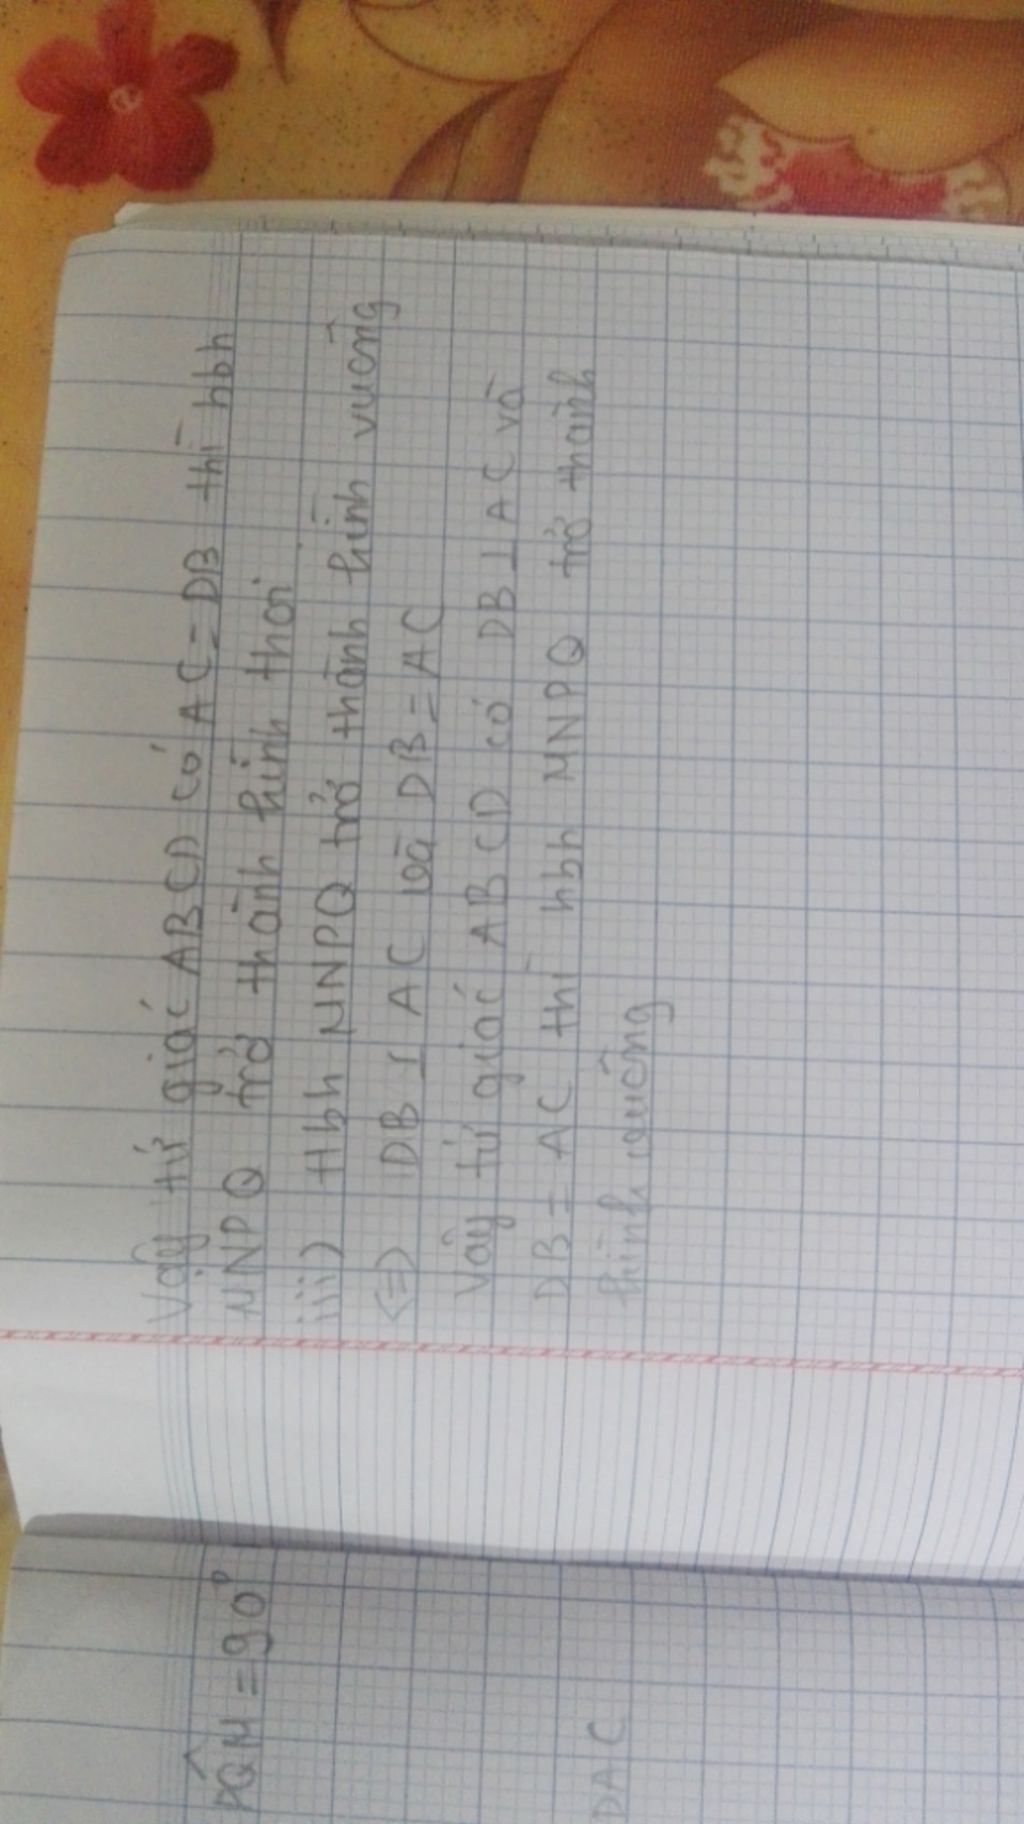 PQM = 90°
DAC
Vậy tứ giác ABCD có AC = DB thì hbh
MNPQ trở thành hình thoi.
iii) Hbh MNPQ trở thành hình vuông
<=> DB ⊥ AC và DB = AC
Vậy tứ giác ABCD có DB ⊥ AC và
DB = AC thì hbh MNPQ trở thành
hình vuông